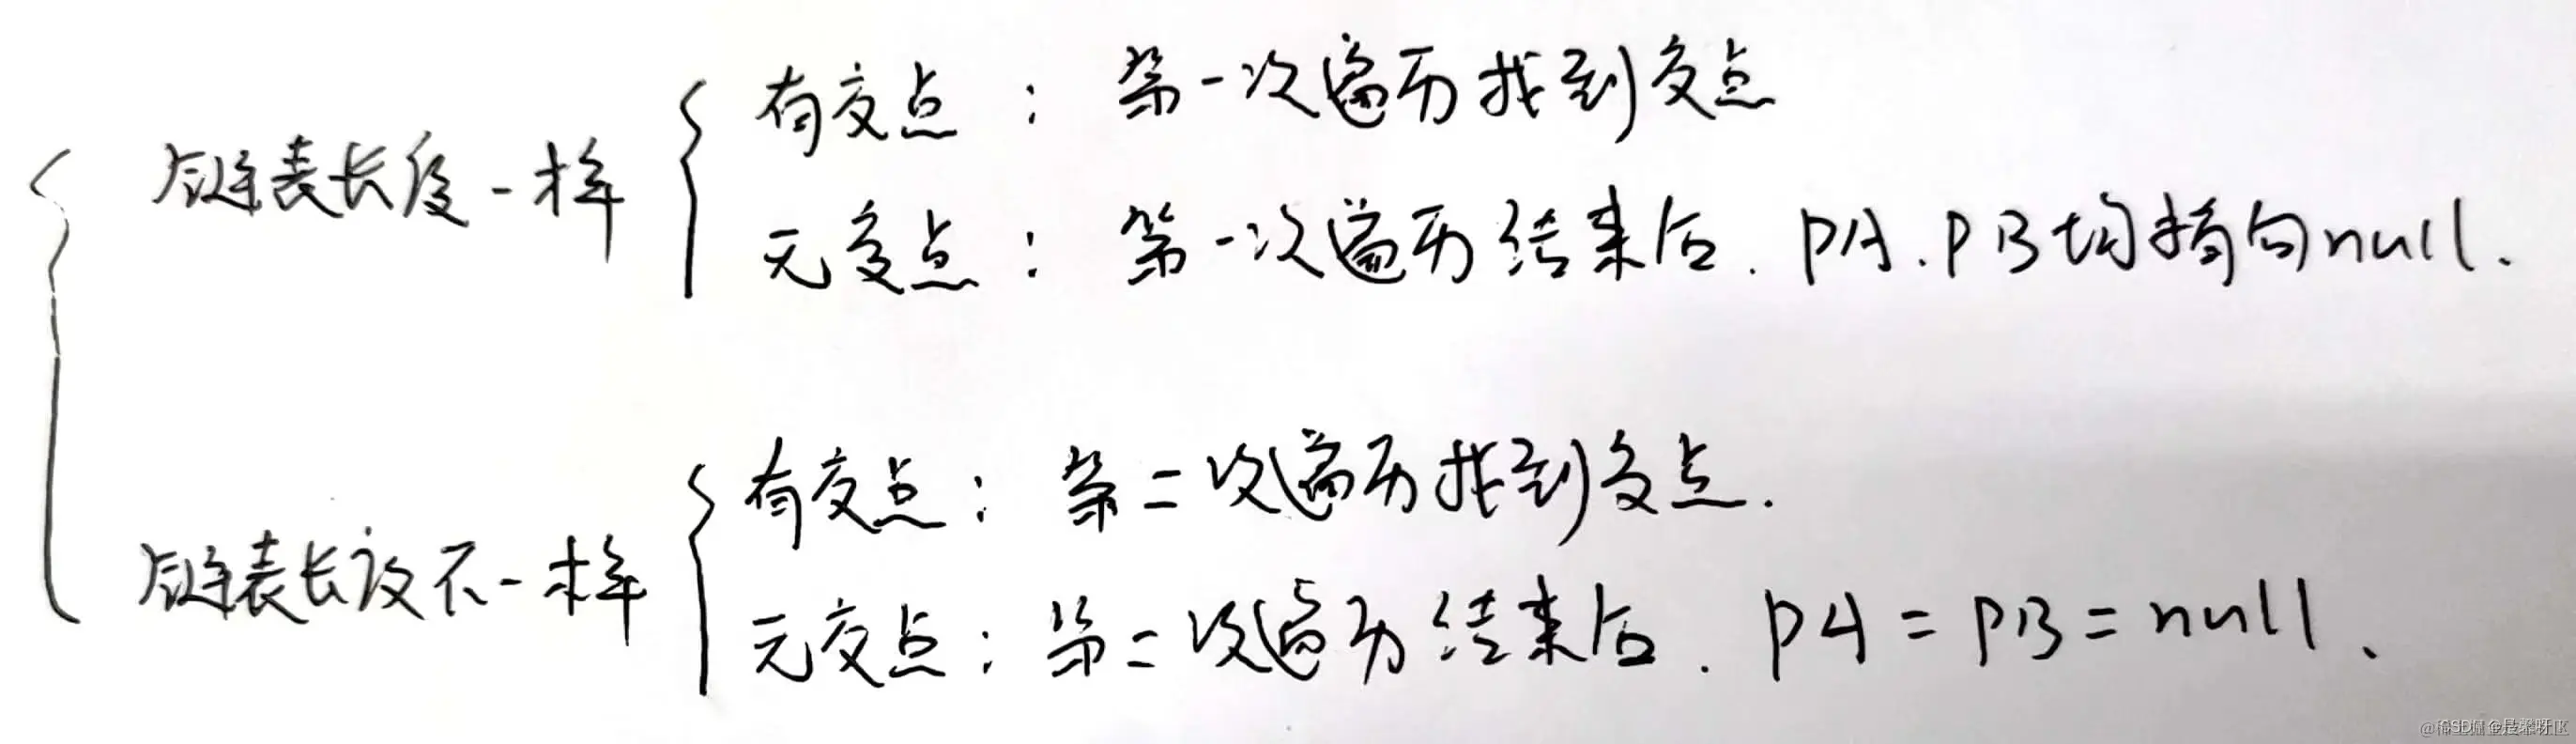 链表长度一样
有交点：第一次遍历找到交点
无交点：第一次遍历结束后. PA.PB均指向null.
链表长度不一样
有交点：第二次遍历找到交点.
无交点：第二次遍历结束后. PA=PB=null、